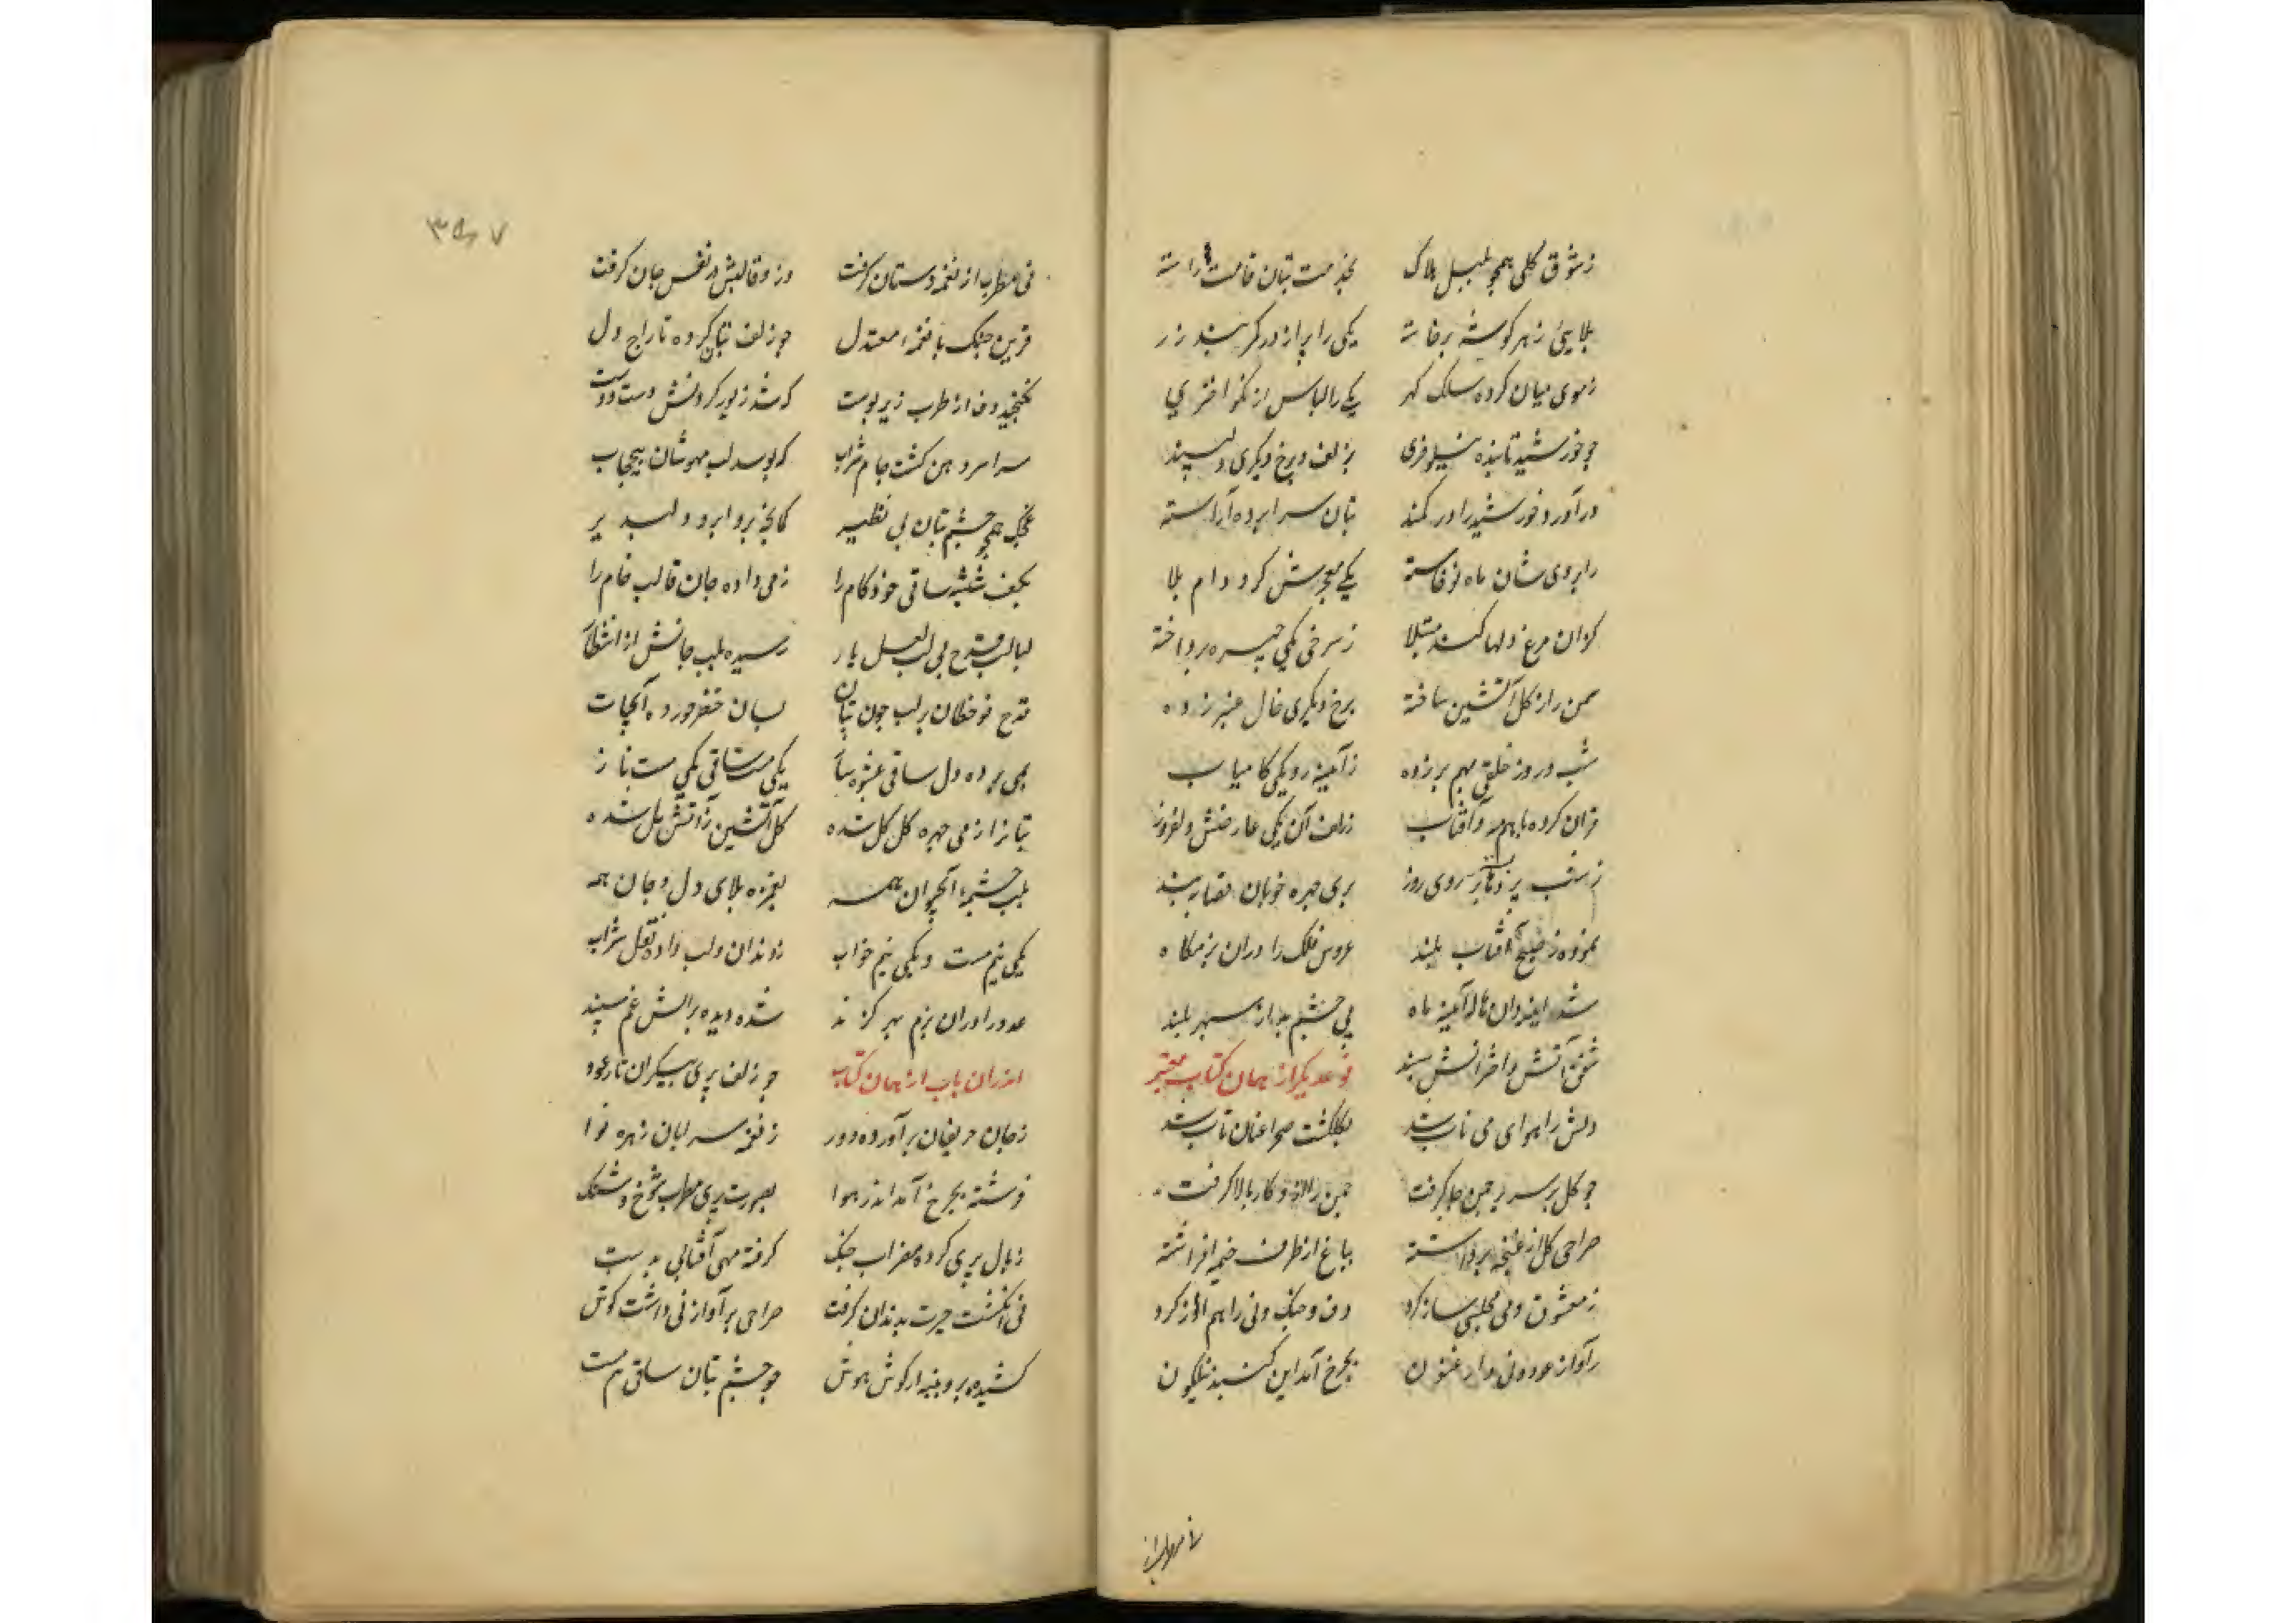 ز شوق گلی همچو بلبل هلاک بخدمت بتان قامت راسته
بلایی ز هر گوشه برخاسته یکی را پر از در کمربند زر
ز موی میان کرده سلک گهر یکی را لباس از نکو اختری
چو خورشید تابنده نیلوفری بزلف و برخ دیگری دلپسند
درآورد خورشید را در کمند بتان سراپرده آراسته
ز ابروی شان ماه نو خاسته یکی معجرش کرد دام بلا
کزان مرغ دلها کند مبتلا ز سرخی یکی چهره پرداخته
سمن را ز گل آتشین ساخته برخ دیگری خال عنبر زده
شب و روز خلقی بهم بر زده ز آیینه رو یکی کامیاب
قران کرده با هم مه و آفتاب ز زلف آن یکی عارضش دلفروز
ز شب پرده بر روی روز پری چهره خوبان نقاب بند
نموده ز صبح آفتاب بلند عروس فلک را در ان بزمگاه
شد آیینه ماه پی چشم بد از سپهر بلند
شفق آتش و اخترانش سپند نوعدیکر از همان کتاب معتبر
دلش را هوای می ناب شد بگلگشت صحرا عنان تاب شد
چو گل بر سریر چمن جا گرفت چمن را از و کار بالا گرفت
صراحی گل از غنچه برداشته بباغ از طرف خیمه افراشته
ز معشوق و می مجلسی ساز کرد دف و چنگ و نی را هم آواز کرد
ز آواز عود و نی و ارغنون بچرخ آمد این گنبد نیلگون
۳۵۷
نی مطرب از نغمه دستان گرفت وزو قالبش در نفس جان گرفت
قرین چنگ با نغمه معتدل چو زلف بتان کرده تاراج دل
نگنجید دف از طرب زیر پوست که شد زیور گردنش دست دوست
سراسر دهن گشت جام شراب که بوسد لب مهوشان بیحجاب
غجک همچو چشم بتان بی نظیر کمانچه برو ابروی دلپذیر
بکف شیشه ساقی خودکام را ز می داده جان قالب خام را
لبالب قدح بی لب لعل یار رسیده بلب جانش از انتظار
قدح نوخطان بر لب چون نبات بسان خضر خورده آبحیات
همی برده دل ساقی عشوه ساز یکی مست ساقی یکی مست ناز
بتانرا ز می چهره گل گل شده گل آتشین ز آتش مل شده
بلب چشمه آبحیوان همه بغمزه بلای دل و جان همه
یکی نیم مست و یکی نیم خواب ز دندان و لب داده نقل شراب
عدو را در ان بزم بهر گزند شده دیده بر آتش غم سپند
اندران باب از همان کتاب چو زلف پری پیکران تار عود
ز جان حریفان برآورده دود ز نغمه سرایان زهره نوا
فرشته بچرخ آمد اندر هوا بصورت پری مطرب شوخ و شنگ
ز بال پری کرده مضراب چنگ گرفته مهی آفتابی بدست
نی انگشت حیرت بدندان گرفت صراحی بر آواز نی داشت گوش
کشیده برو پنبه از گوش هوش چو چشم بتان ساقی مست